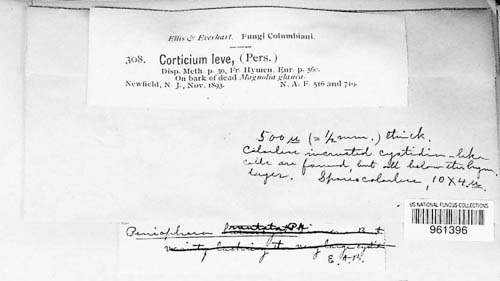 Ellis & Everhart. Fungi Columbiani.
308. Corticium leve, (Pers.)
Disp. Meth. p. 30, Fr. Hymen. Eur. p. 560.
On bark of dead Magnolia glauca.
Newfield, N. J., Nov. 1893. N. A. F. 516 and 719.
500 µ (= ½ mm.) thick.
Colorless incrusted cystidia-like
cells are found, but all below the hym.
layer. Spores colorless, 10 X 4 µ.
US NATIONAL FUNGUS COLLECTIONS
961396
Peniophora
very large